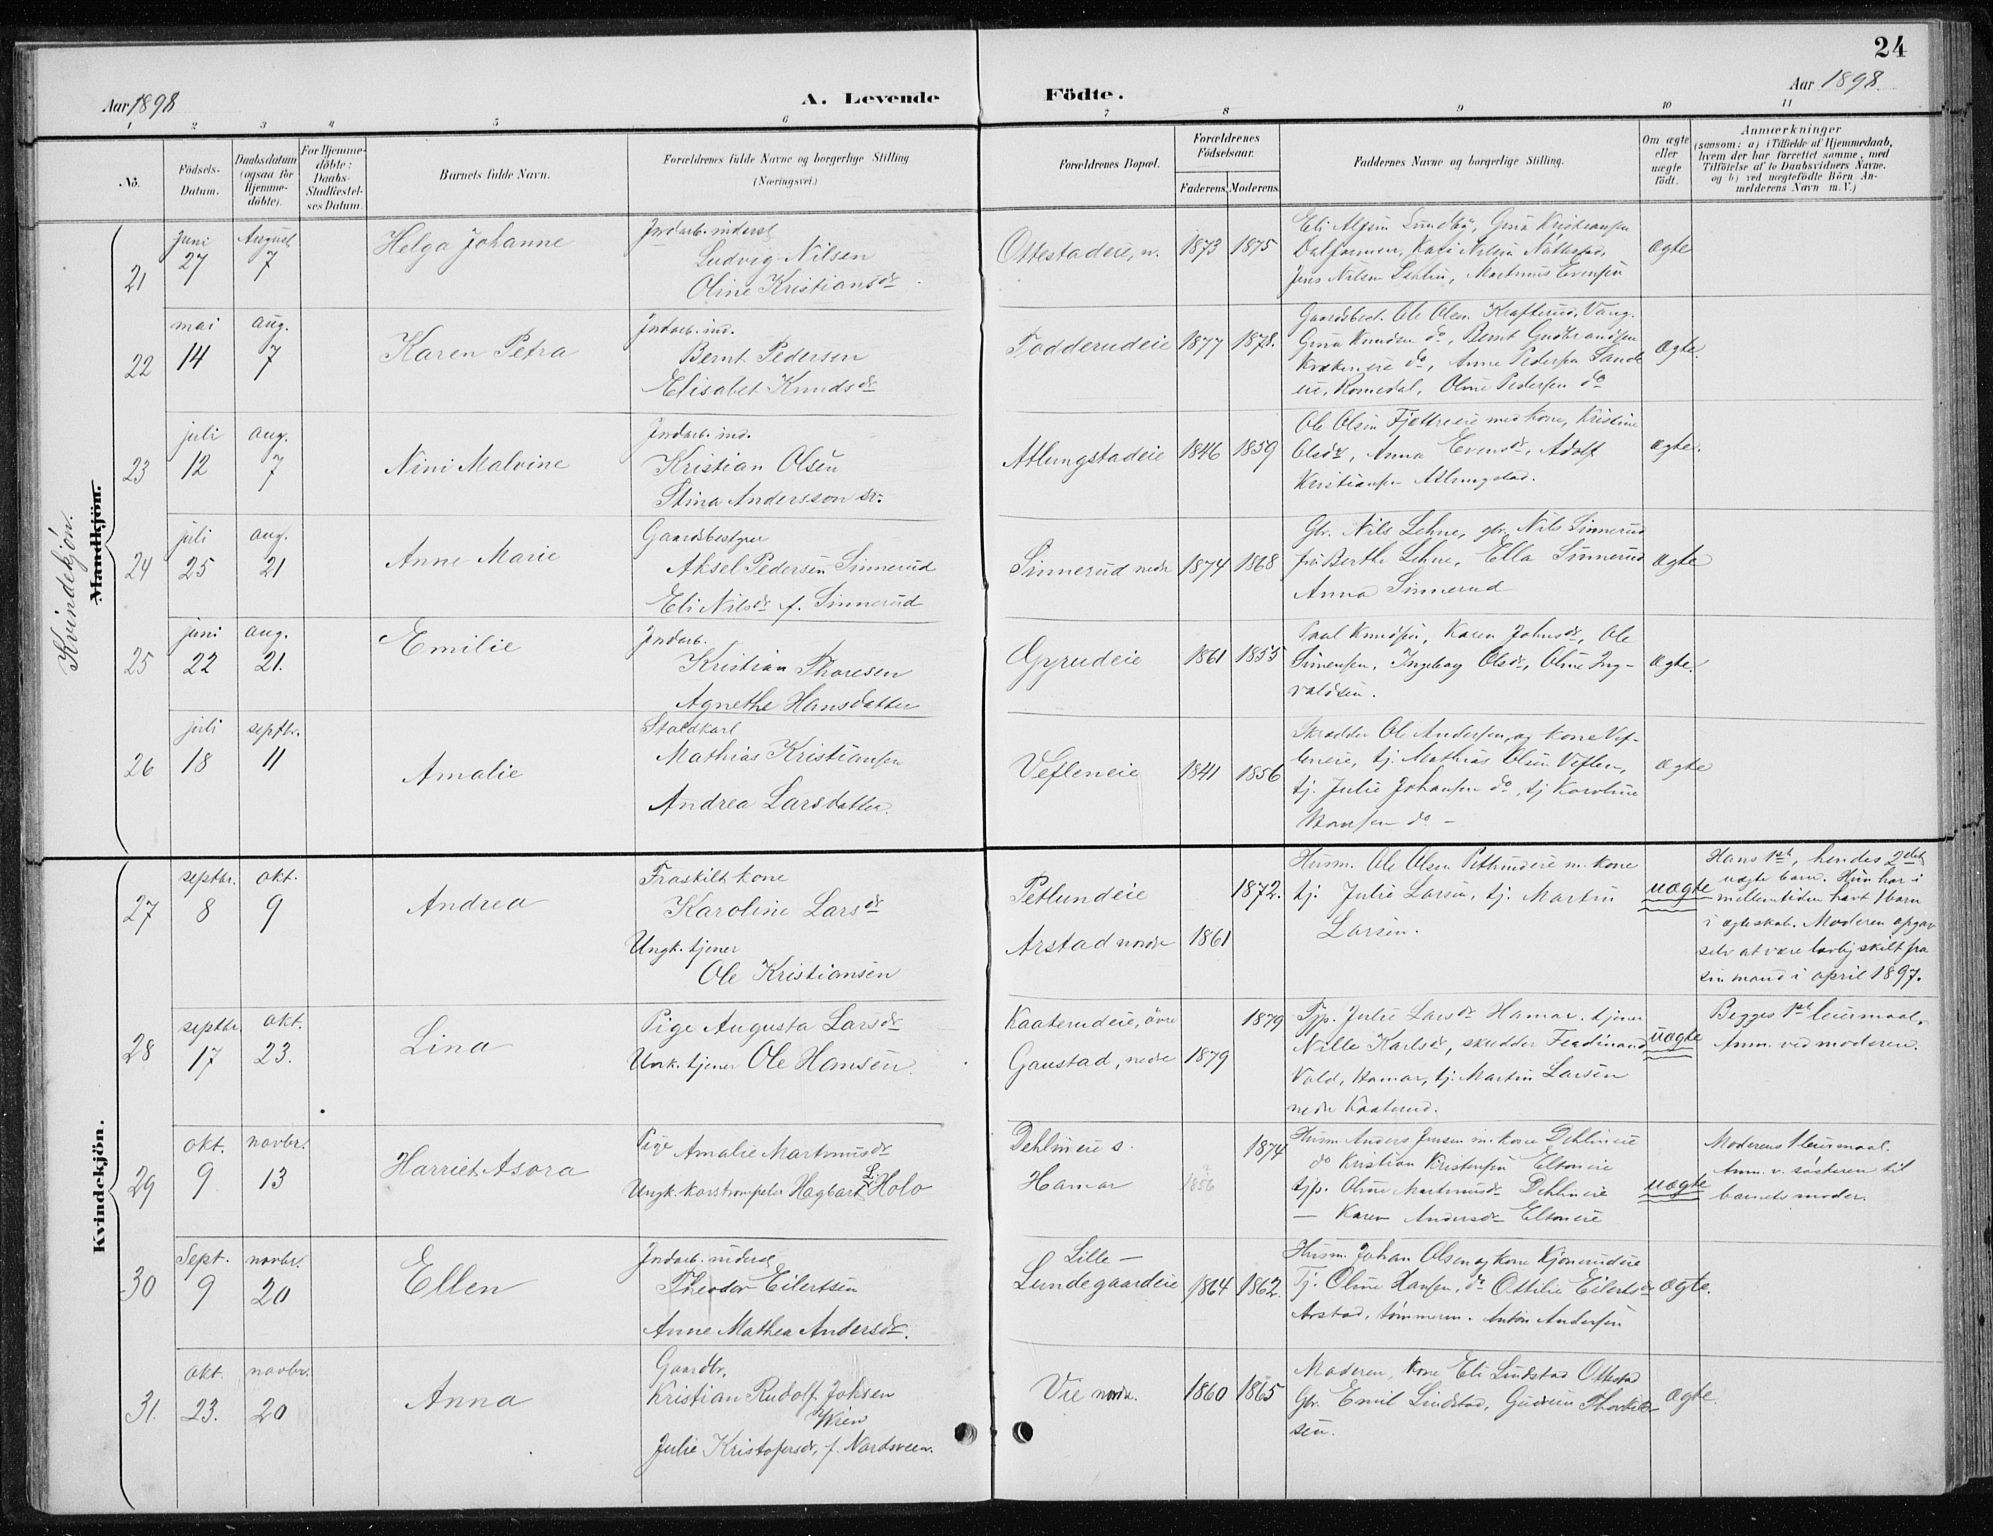 24
Aar 1898
A. Levende
Födte.
Aar 1898.
1 2 3 4 5 6 7 8 9 10 11
No.
Födsels-Datum.
Daabsdatum (ogsaa for Hjemme-döbte).
For Hjemme-döbte: Daabs-Stadfæstel-ses Datum.
Barnets fulde Navn.
Forældrenes fulde Navne og borgerlige Stilling (Næringsvei.)
Forældrenes Bopæl.
Forældrenes Födselsaar.
Faderens. Moderens.
Faddernes Navne og borgerlige Stilling.
Om ægte eller uægte födt.
Anmærkninger
(saasom: a) i Tilfælde af Hjemmedaab, hvem der har forrettet samme, med Tilföielse af to Daabsvidners Navne. og b) ved uægtefödte Börn An-melderens Navn m. V.)
Mandkjön.
Kvindekjøn.
21 Juni 27 August 7 Helga Johanne
Indarb. inderst
Ludvig Nilsen
Oline Kristiansdr
Ottestadeie, n. 1873 1875
Eli Alfsen Lundby, Grina Kristiansen
Jens Nilsen, Martinus Evensen
Ægte
22 mai 14 aug. 7 Karen Petra
Indarb. ind.
Bernt Pedersen
Elisabet Knudsdr
Fodderudeie 1877 1878.
Gaardbest. Ole Olsen Krafterud, Vang.
Grina Knudsen do, Bernt Gudbrandsen
do, Anne Pedersen Sande
eie, Romedal, Oline Pedersen do
Ægte.
23 juli 12 aug. 7 Nini Malvine
Indarb. ind.
Kristian Olsen
Stina Andersson sv.
Atlungstadeie 1846 1859
Ole Olsen Fjetreeie med kone, Kristine
Olsdr, Anna Evensdr, Adolf
Kristiansen Atlungstad.
ægte.
24 juli 25 aug. 21 Anne Marie
Gaardsbestyrer
Aksel Pedersen Sinnerud
Eli Nilsdr f. Sinnerud
Sinnerud nedre 1874 1868
Gbr. Nils Lehne, gbr. Nils Sinnerud
fru Berthe Lehne, Ella Sinnerud
Anna Sinnerud
Ægte
25 juni 22 aug. 21. Emilie
Indarb.
Kristian Thoresen
Agnethe Hansdatter
Gyrudeie 1861 1855
Paul Knudsen, Karen Johnsdr, Ole
Simensen, Ingeborg Olsdr, Oline Ing-
valdsen.
Ægte.
26 juli 18 septbr. 11 Amalie
Staldkarl
Mathias Kristiansen
Andrea Larsdatter.
Vefleneie 1841 1856
Skrædder Ole Andersen og kone Vef-
leneie, tj. Mathias Olsen Veflen,
tj. Julie Johansen do, tj Karoline
Hansen do –
Ægte
Kvindekjön.
27 septbr. 8 okt. 9 Andrea
Fraskilt kone
Karoline Larsdr
Ungk. tjener
Ole Kristiansen
Petlundeie 1872.
Arstad nordre 1861
Husm. Ole Olsen Petlundeie m. kone
tj. Julie Larsen, tj. Martin
Larsen.
uægte
Hans 1ste, hendes 2det
uægte barn. Hun har i
mellemtiden havt 1 barn
i ægteskab. Moderen opgav
selv at være lovlig skilt fra
sin mand i april 1897.
28 septbr. 17 okt. 23. Lina
Pige Augusta Larsdr
Unk. tjener Ole Hansen
Kaaterudeie, övre 1879
Gaustad, nedre 1879
Tjp. Julie Larsdr Hamar, tjener
Nille Karlsdr, skrædder Ferdinand
Vold, Hamar, tj. Martin Larsen
nedre Kaaterud.
uægte
Begges 1ste leiermaal,
Anm. ved moderen.
29 okt. 9 novbr. 13 Harriet Asora
Pige Amalie Martinusdr
Ungk. Hagbart L. Holo
Dehlineie s. 1874
Hamar 1856
Husm. Anders Jensen m. kone Dehlineie
do Kristian Kristensen Eltoneie
tjp. Oline Martinusdr Dehlineie
— Karen Andersdr Eltoneie
uægte
Moderens 1 leiermaal.
Anm. v. søsteren til
barnets moder.
30 Sept. 9 novbr. 20 Ellen
Indarb. inderst
Theodor Eilertsen
Anne Mathea Andersdr.
Lille –
Lundegaardeie 1864 1862.
Husm. Johan Olsen og kone Kjonerudeie
Tj. Oline Hansen, do Ottilie Eilertsdr
Arstad, tømmerm. Anton Andersen
ægte.
31. okt. 23. novbr. 20 Anna
Gaardbr.
Kristian Rudolf Johsen
Wien
Julie Kristofersdr, f. Nordsveen.
Vie nordr. 1860 1865
Moderen, kone Eli Lindstad Ottestad
Gbr. Emil Lindstad, Gudrun Thorkild-
sen.
ægte.